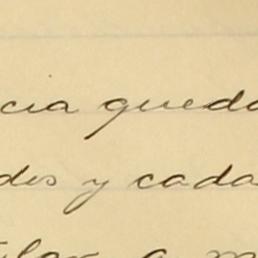 cia queda
dos y cada